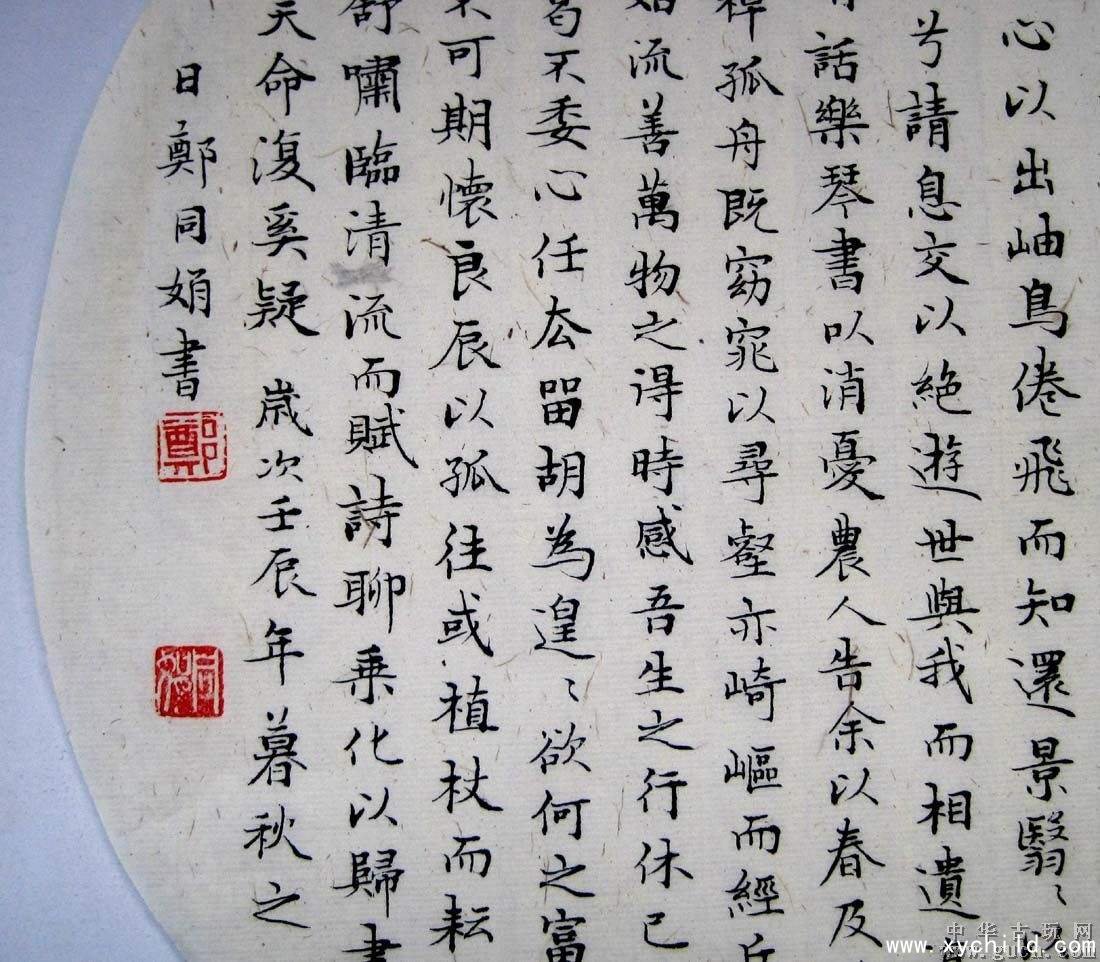 心以出岫鳥倦飛而知還景翳〻
兮請息交以絶遊世與我而相遺
話樂琴書以消憂農人告余以春及
棹孤舟既窈窕以尋壑亦崎嶇而經丘
流善萬物之得時感吾生之行休已
曷不委心任去留胡為遑〻欲何之富
不可期懷良辰以孤往或植杖而耘
舒嘯臨清流而賦詩聊乗化以歸盡
天命復奚疑 歲次壬辰年暮秋之
日鄭同娟書
鄭
同娟
中华古玩网
www.gucn.com
www.xychild.com